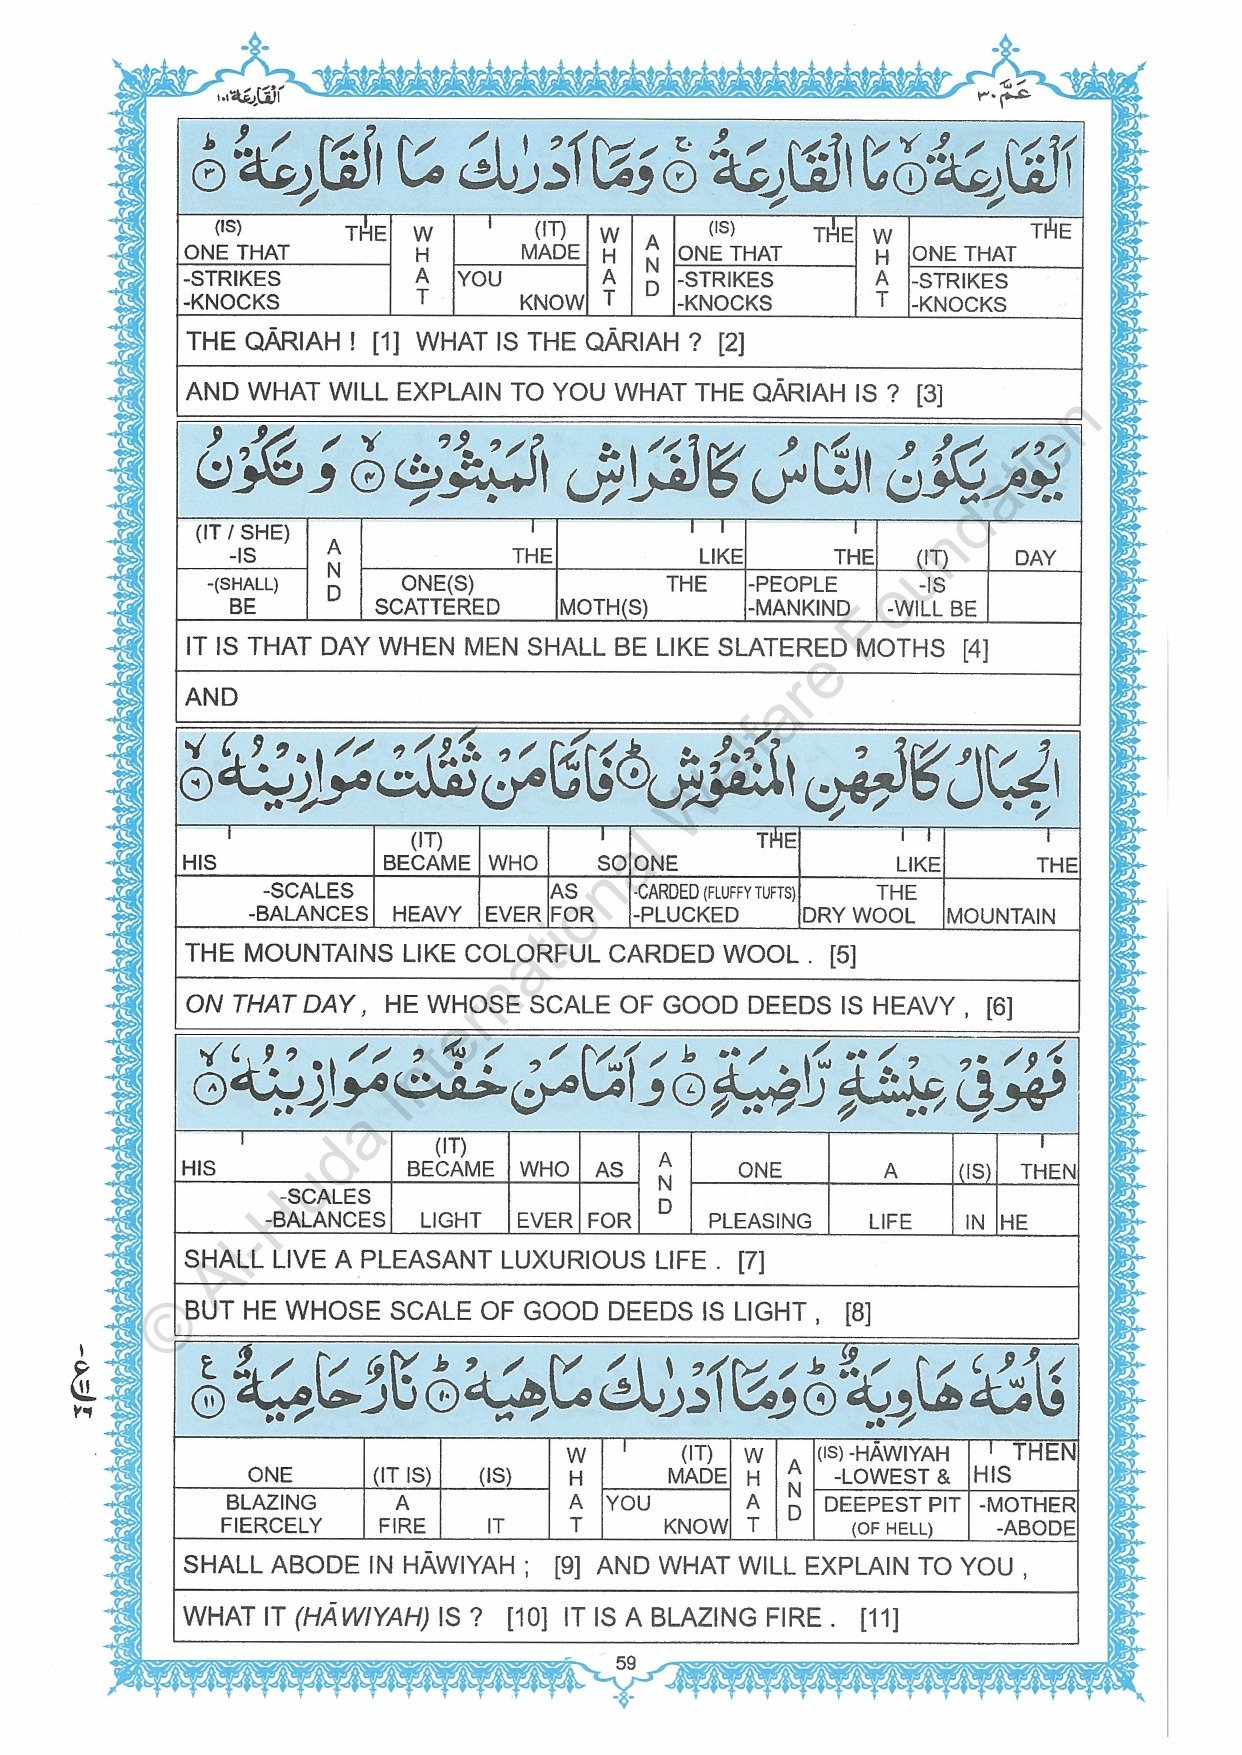 القارعة ١٠١
عَمَّ ٣٠
اَلْقَارِعَةُ ۙ‏﴿۱﴾ مَا الْقَارِعَةُ ۚ‏﴿۲﴾ وَمَاۤ اَدْرٰىكَ مَا الْقَارِعَةُ ؕ‏﴿۳﴾
(IS) THE W (IT) W A (IS) THE W THE
ONE THAT H MADE H N ONE THAT H ONE THAT
-STRIKES A YOU A D -STRIKES A -STRIKES
-KNOCKS T KNOW T -KNOCKS T -KNOCKS
THE QĀRIAH ! [1] WHAT IS THE QĀRIAH ? [2]
AND WHAT WILL EXPLAIN TO YOU WHAT THE QĀRIAH IS ? [3]
يَوْمَ يَكُوْنُ النَّاسُ كَالْفَرَاشِ الْمَبْثُوْثِ ۙ‏﴿۴﴾ وَ تَكُوْنُ
(IT / SHE) A
-IS N THE LIKE THE (IT) DAY
-(SHALL) D ONE(S) THE -PEOPLE -IS
BE SCATTERED MOTH(S) -MANKIND -WILL BE
IT IS THAT DAY WHEN MEN SHALL BE LIKE SLATERED MOTHS [4]
AND
الْجِبَالُ كَالْعِهْنِ الْمَنْفُوْشِ ؕ‏﴿۵﴾ فَاَمَّا مَنْ ثَقُلَتْ مَوَازِيْنُهٗ ۙ‏﴿۶﴾
(IT) THE
HIS BECAME WHO SO ONE LIKE THE
-SCALES AS -CARDED (FLUFFY TUFTS) THE
-BALANCES HEAVY EVER FOR -PLUCKED DRY WOOL MOUNTAIN
THE MOUNTAINS LIKE COLORFUL CARDED WOOL . [5]
ON THAT DAY , HE WHOSE SCALE OF GOOD DEEDS IS HEAVY , [6]
فَهُوَ فِيْ عِيْشَةٍ رَّاضِيَةٍ ؕ‏﴿۷﴾ وَ اَمَّا مَنْ خَفَّتْ مَوَازِيْنُهٗ ۙ‏﴿۸﴾
(IT) A
HIS BECAME WHO AS N ONE A (IS) THEN
-SCALES D
-BALANCES LIGHT EVER FOR PLEASING LIFE IN HE
SHALL LIVE A PLEASANT LUXURIOUS LIFE . [7]
BUT HE WHOSE SCALE OF GOOD DEEDS IS LIGHT , [8]
فَاُمُّهٗ هَاوِيَةٌ ؕ‏﴿۹﴾ وَمَاۤ اَدْرٰىكَ مَا هِيَهْ ؕ‏﴿۱۰﴾ نَارٌ حَامِيَةٌ ‏﴿۱۱﴾ ع
W (IT) W A (IS) -HĀWIYAH THEN
ONE (IT IS) (IS) H MADE H N -LOWEST & HIS
BLAZING A A YOU A D DEEPEST PIT -MOTHER
FIERCELY FIRE IT T KNOW T (OF HELL) -ABODE
SHALL ABODE IN HĀWIYAH ; [9] AND WHAT WILL EXPLAIN TO YOU ,
WHAT IT (HĀWIYAH) IS ? [10] IT IS A BLAZING FIRE . [11]
59
© Al-Huda International Welfare Foundation